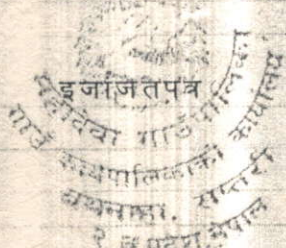 इजाजतपत्र
महादेवा गाउँपालिका
गाउँ कार्यपालिकाको कार्यालय
सप्तरी
प्रदेश नेपाल